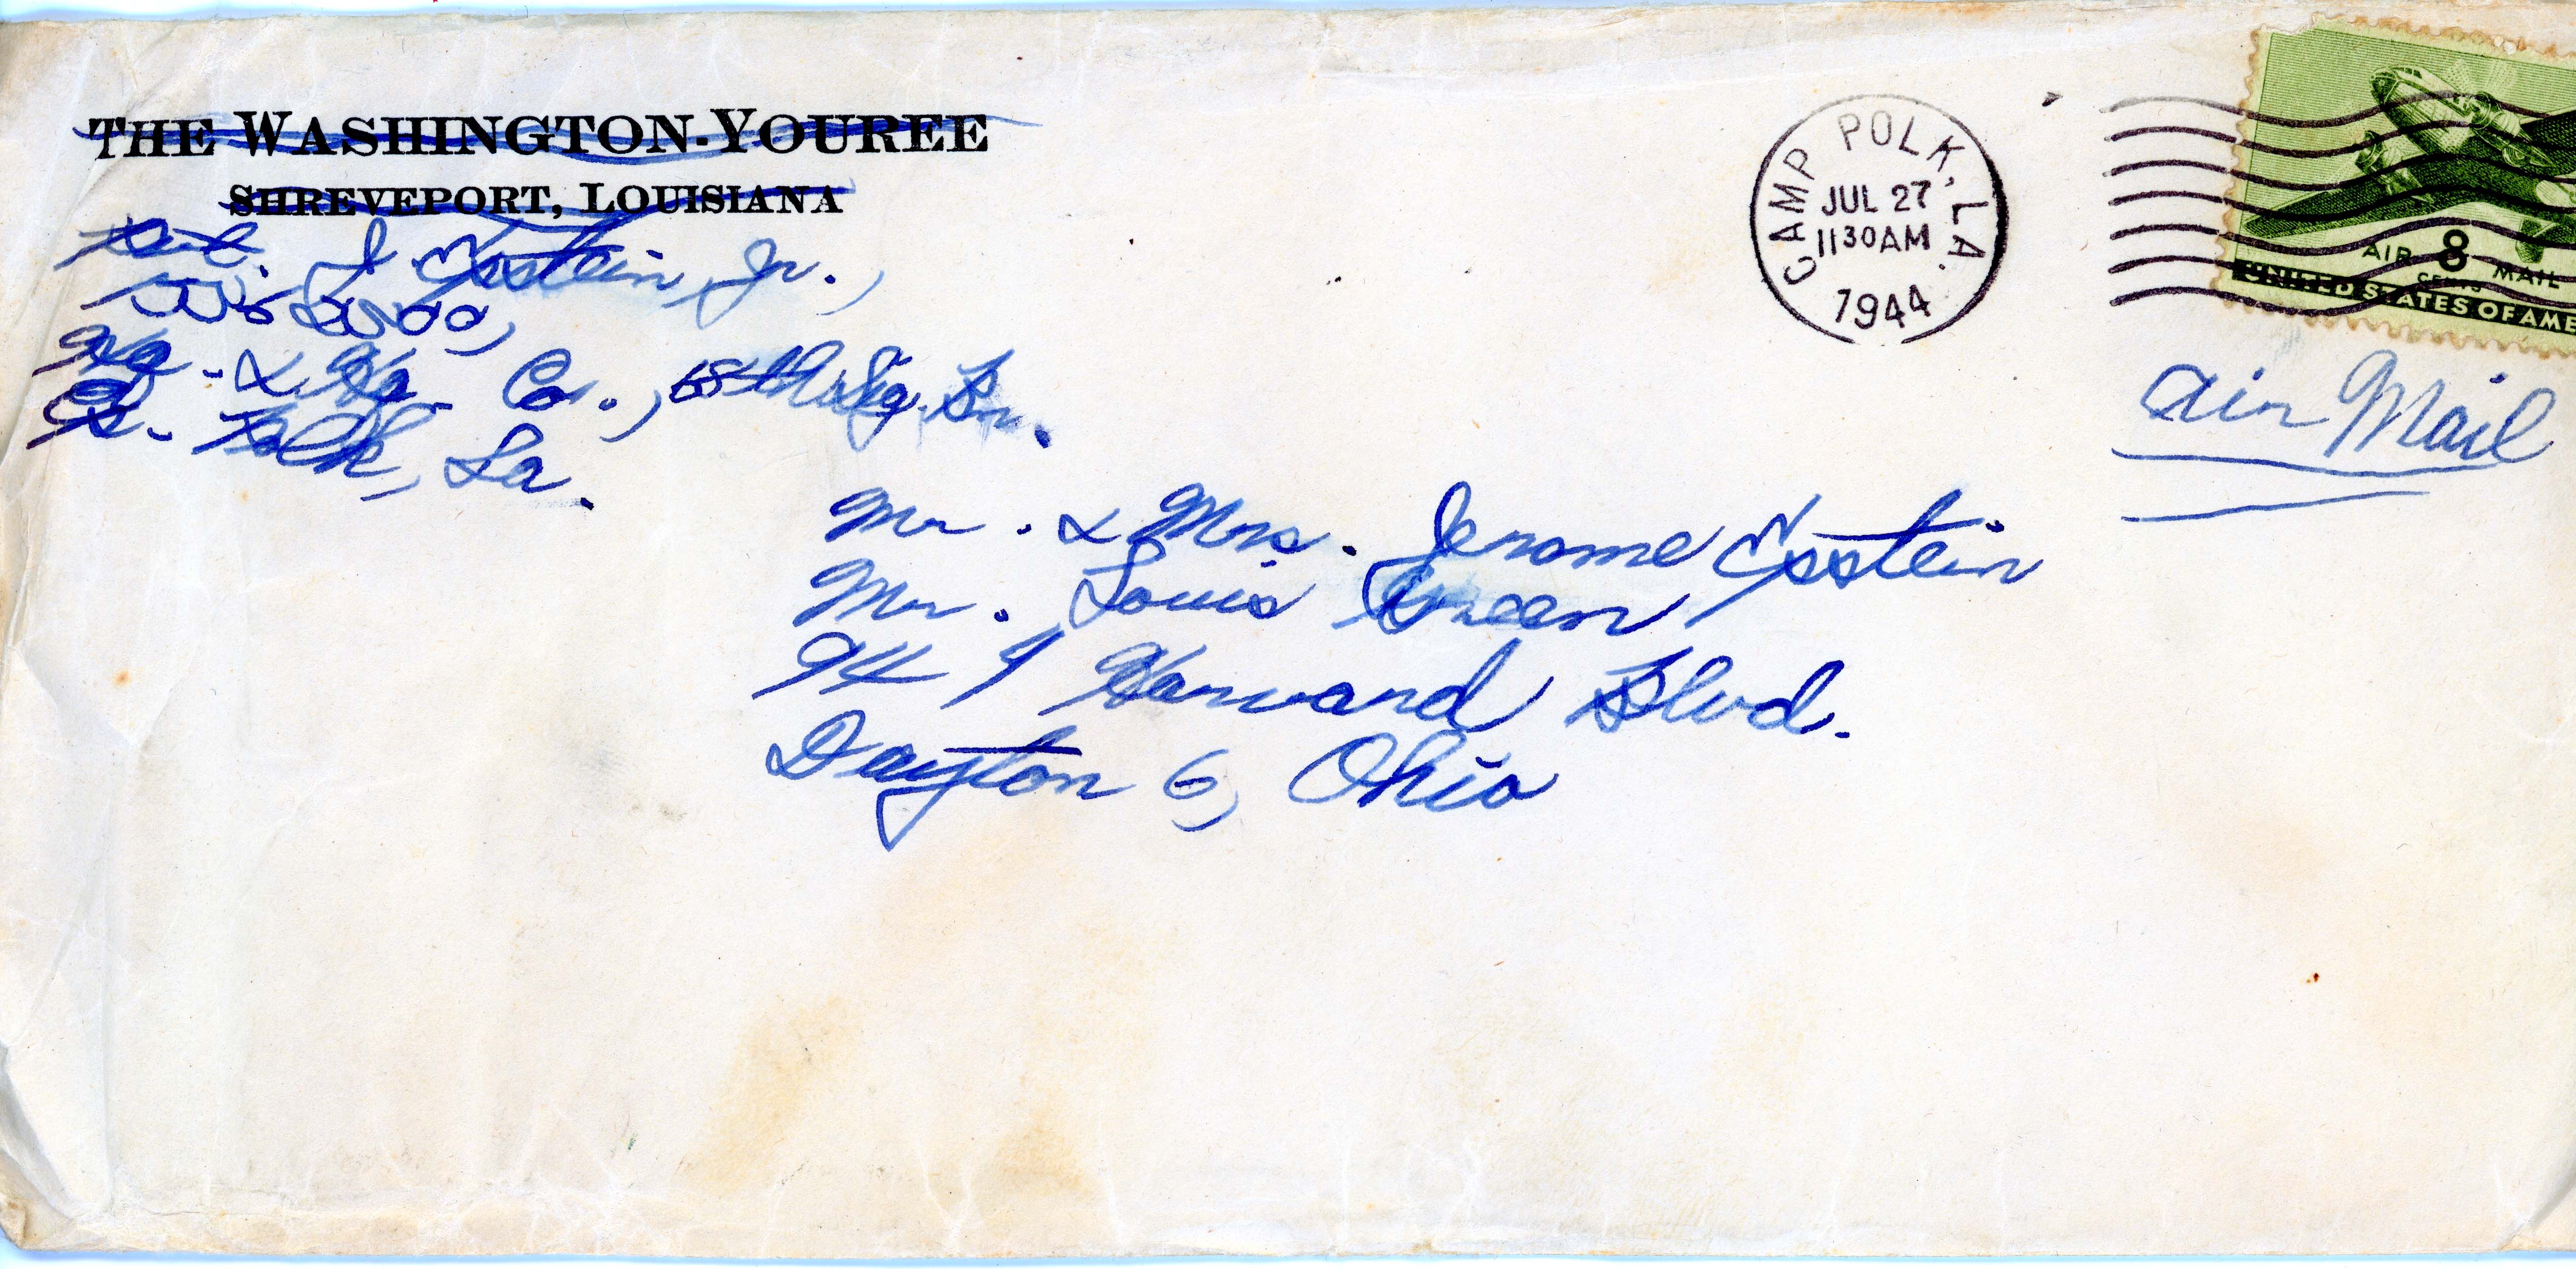 THE WASHINGTON-YOUREE
SHREVEPORT, LOUISIANA
J Epstein, Jr.,
Hq. & Hq. Co., 68th Sig. Bn.
Cp. Polk, La.
CAMP POLK, LA.
JUL 27
1130AM
1944
AIR 8 MAIL
CENTS
UNITED STATES OF AME
Air Mail
Mr. & Mrs. Jerome Epstein
Mr. Louis Green
949 Harvard Blvd.
Dayton 6, Ohio